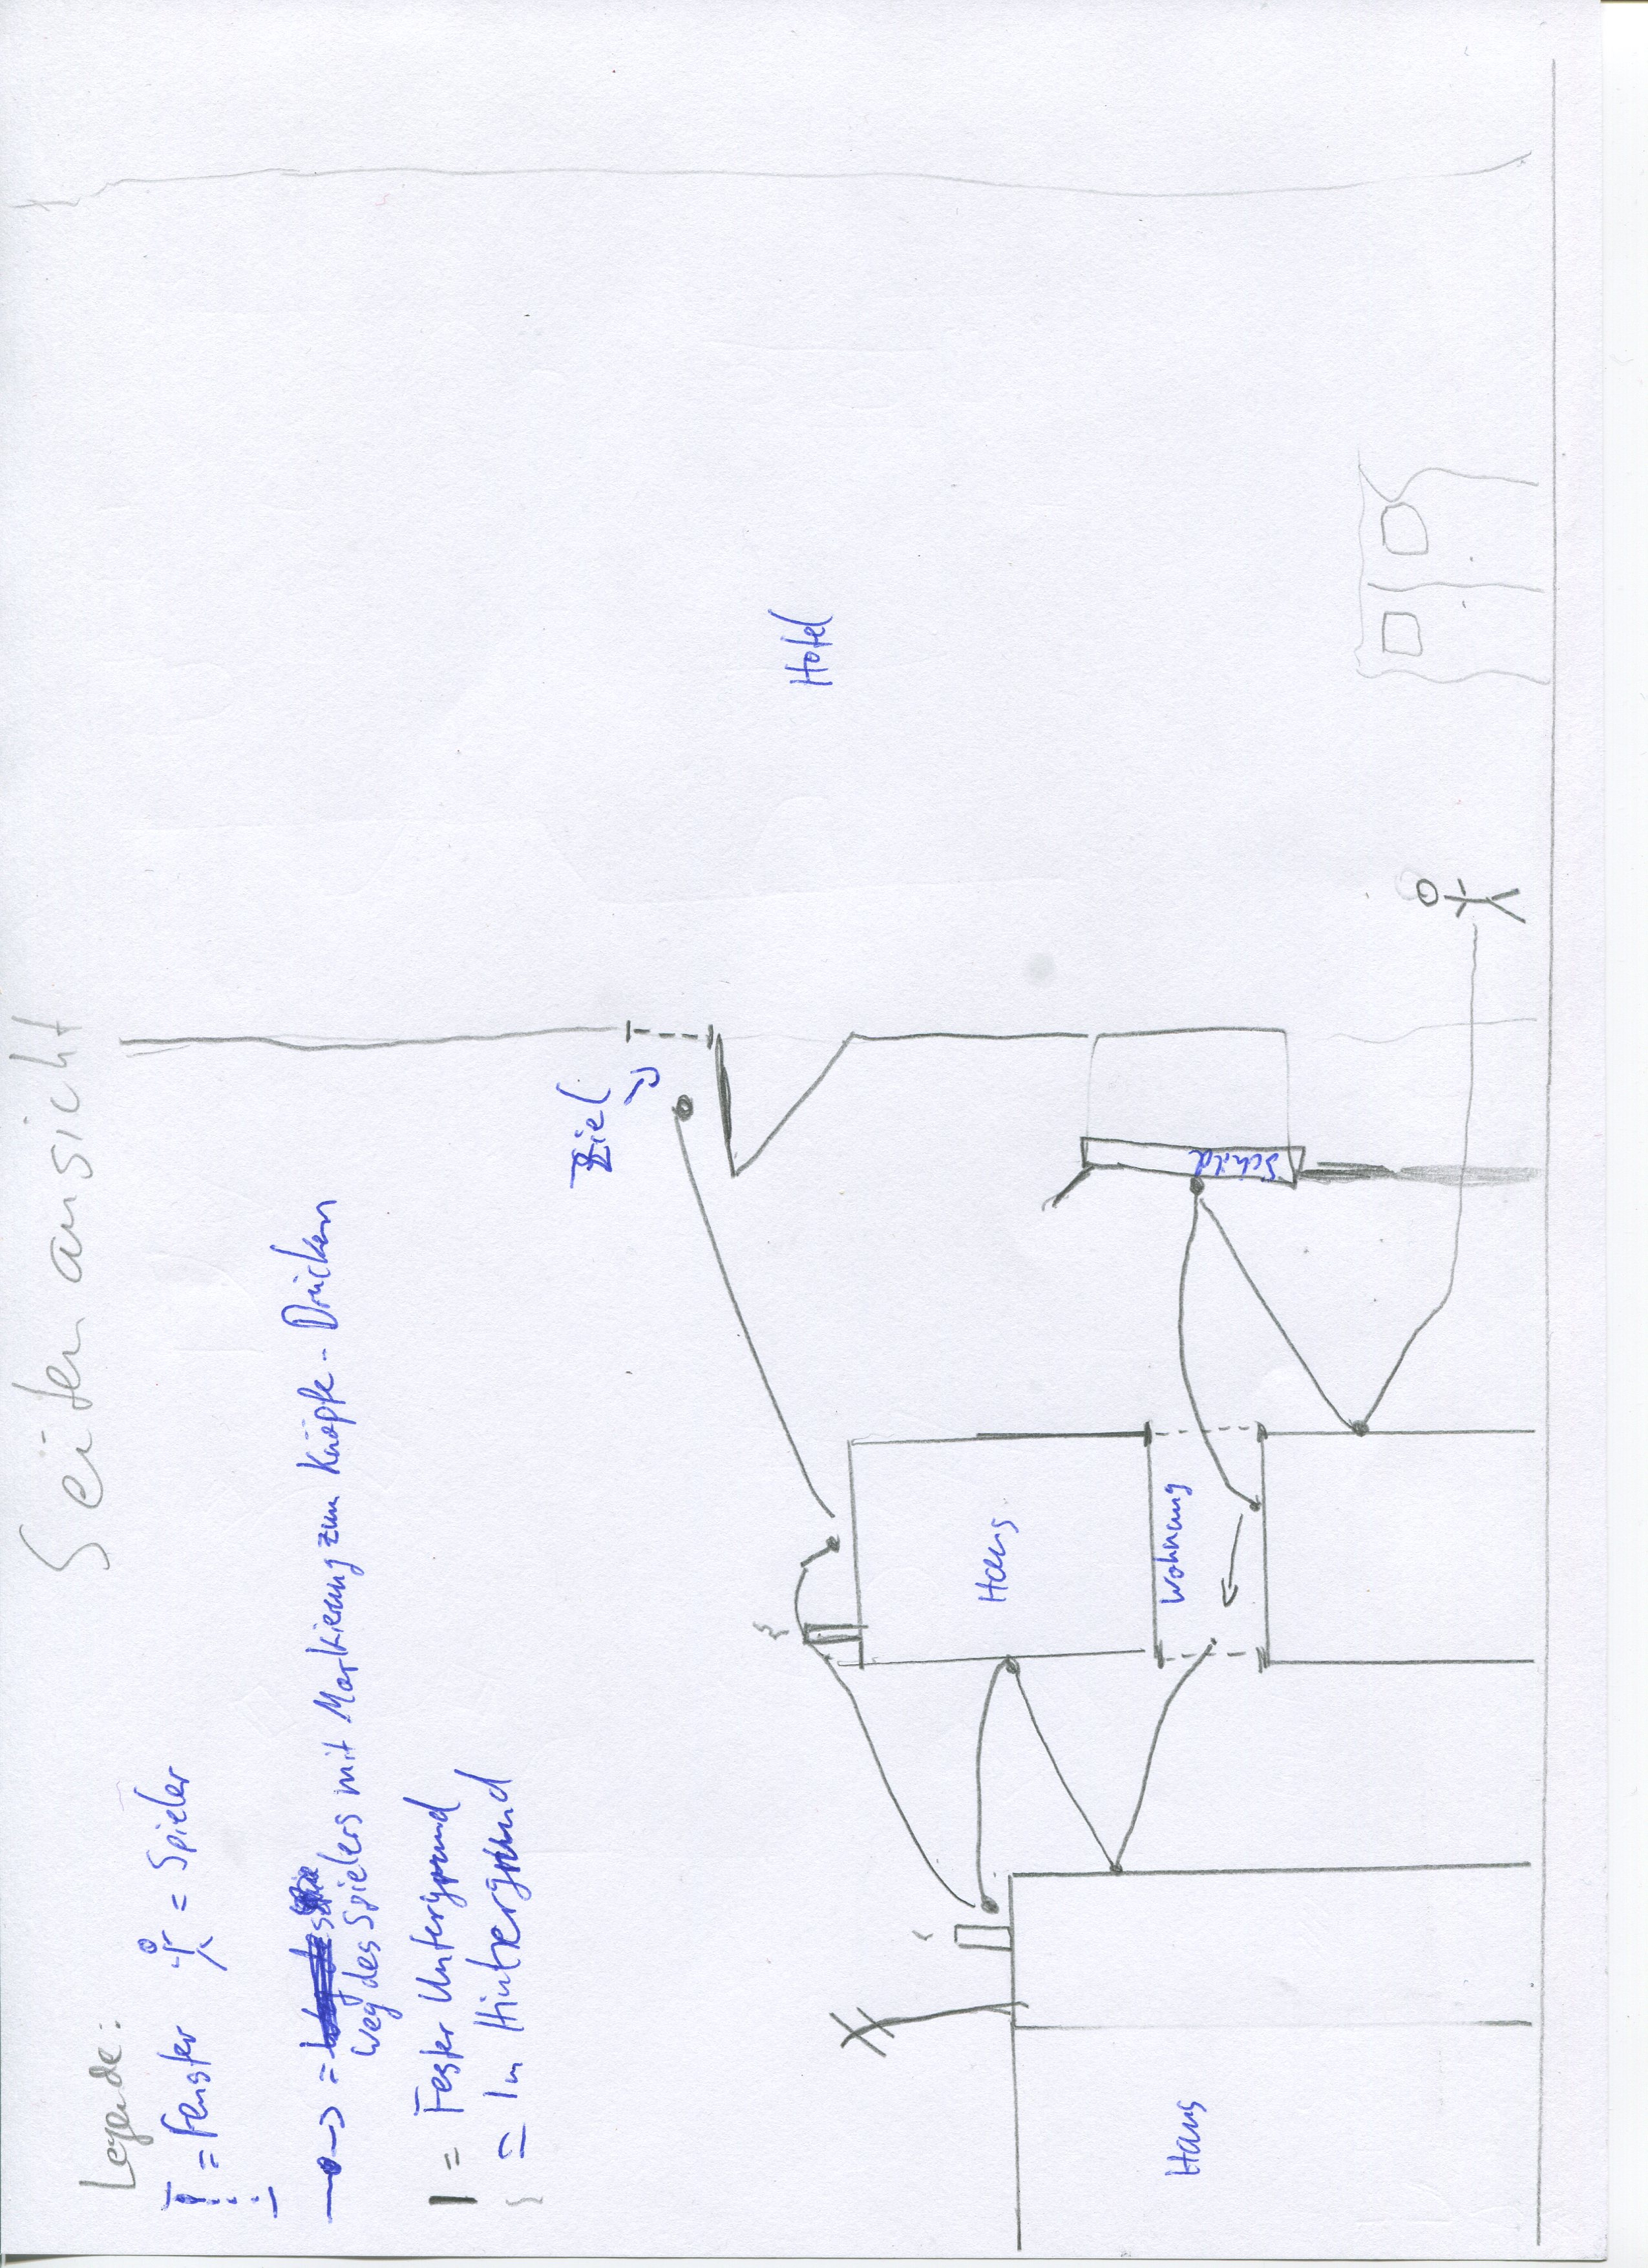 Seitenansicht
Legende:
= Fenster
= Spieler
=
Weg des Spielers mit Markierung zum Knöpfe-Drücken
= Fester Untergrund
= Im Hintergrund
Ziel
Hotel
Haus
Haus
Wohnung
Schild